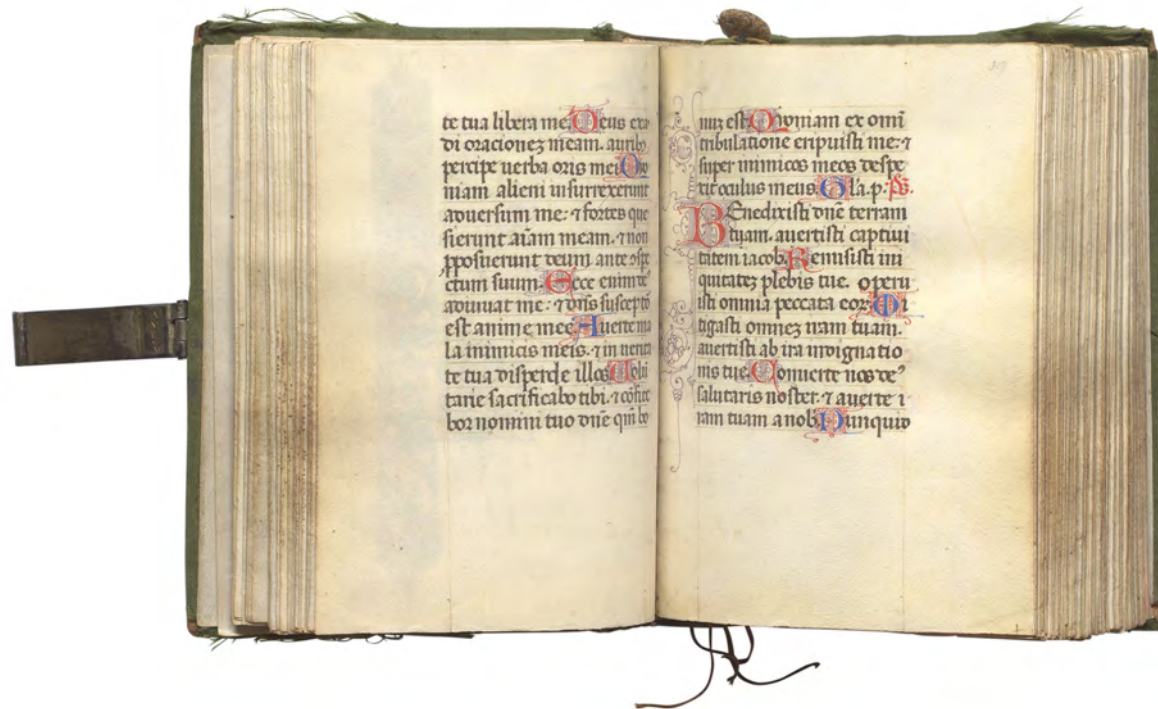 te tua libera me. Deus exau
di oracionez meam. auribꝰ
percipe uerba oris mei. Quo
niam alieni insurrexerunt
aduersum me: ⁊ fortes que
sierunt aīam meam. ⁊ non
ꝓposuerunt deum ante ꝯspe
ctum suum. Ecce enim deꝰ
adiuuat me: ⁊ dn̄s susceptor
est anime mee. Auerte ma
la inimicis meis. ⁊ in uerita
te tua disperde illos. Uolū
tarie sacrificabo tibi. ⁊ cōfite
bor nomini tuo dn̄e qm̄ bo
nuz est. Quoniam ex omī
tribulatione eripuisti me: ⁊
super inimicos meos despe
xit oculus meus. Gl'a. p: ps.
Benedixisti dn̄e terram
tuam. auertisti captiui
tatem iacob. Remisisti ini
quitatez plebis tue. operu
isti omnia peccata eoꝝ. Mi
tigasti omnez iram tuam.
auertisti ab ira indignatio
nis tue. Conuerte nos deꝰ
salutaris noster. ⁊ auerte i
ram tuam a nob. Nunquid